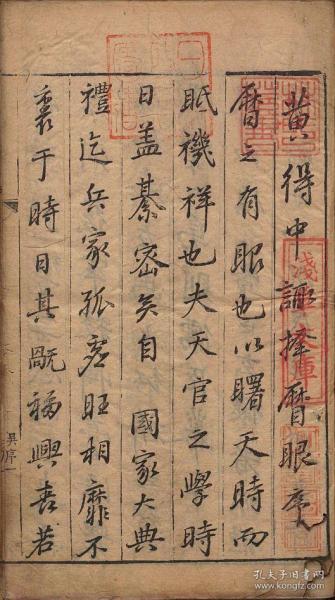 黃得中諏擇曆眼序
曆之有眼也以曙天時而
眡禨祥也夫天官之學時
日盖綦密矣自 國家大典
禮迄兵家孤虛旺相靡不
裹于時日其觀福興喪若
吳序一
淺草文庫
孔夫子旧书网